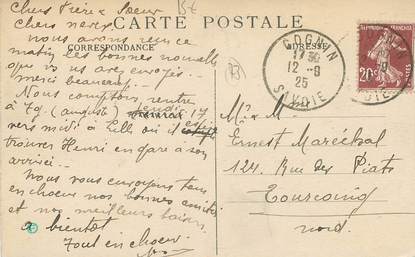 Chers Frère & Sœur
Chers neveux
nous avons reçu ce
matin les bonnes nouvelles
que vous nous avez envoyées
merci beaucoup
Nous comptons rentrer
à Tg (août) jeudi 17
vers midi à Lille où
trouver Henri en gare à son
arrivée
Nous vous envoyons tous
en chœur nos bonnes amitiés
et nos meilleurs baisers
à bientôt
Tout en chœur
15f
CARTE POSTALE
CORRESPONDANCE
ADRESSE
COGNIN
17 30
12 - 8
25
SAVOIE
20c
Mr & Me
Ernest Maréchal
124, Rue des Piats
Tourcoing
Nord.